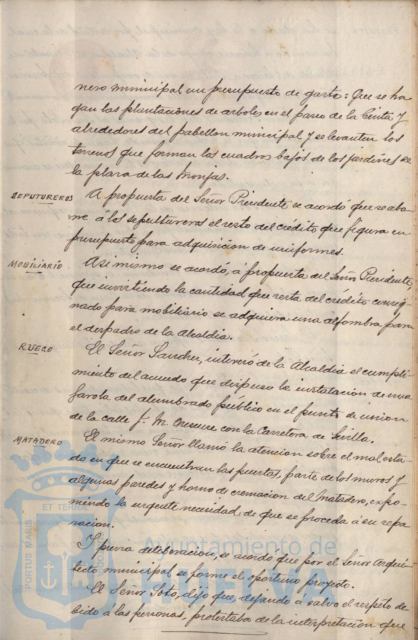 nero municipal un presupuesto de gasto: Que se ha
gan las plantaciones de arboles en el paseo de la Cinta y
alrededores del pabellon municipal y se levanten los
terrenos que forman los cuadros bajos de los jardines de
la plaza de las Monjas.
SEPUTUREROS
A propuesta del Señor Presidente se acordó que se abo
ne á los sepultureros el resto del crédito que figura en
presupuesto para adquisicion de uniformes.
MOBILIARIO
Asi mismo se acordó, á propuesta del Señor Presidente,
que invirtiendo la cantidad que resta del credito consig
nado para mobiliario se adquiera una alfombra para
el despacho de la Alcaldia.
RUEGO
El Señor Sanchez, interesó de la Alcaldia el cumpli
miento del acuerdo que dispuso la instalacion de una
farola del alumbrado público en el punto de union
de la calle J. M. con la Carretera de Sevilla.
MATADERO
El mismo Señor llamó la atencion sobre el mal esta
do en que se encuentran las puertas, parte de los muros y
algunas paredes y horno de cremacion del Matadero, expo
niendo la urgente necesidad de que se proceda á su repa
racion.
Y previa deliberacion, se acordó que por el Señor Arqui
tecto municipal se forme el oportuno proyecto.
El Señor Soto, dijo que dejando á salvo el respeto de
bido á las personas, protestaba de la interpretacion que
PORTUS MARIS
ET TERRAE
Ayuntamiento de